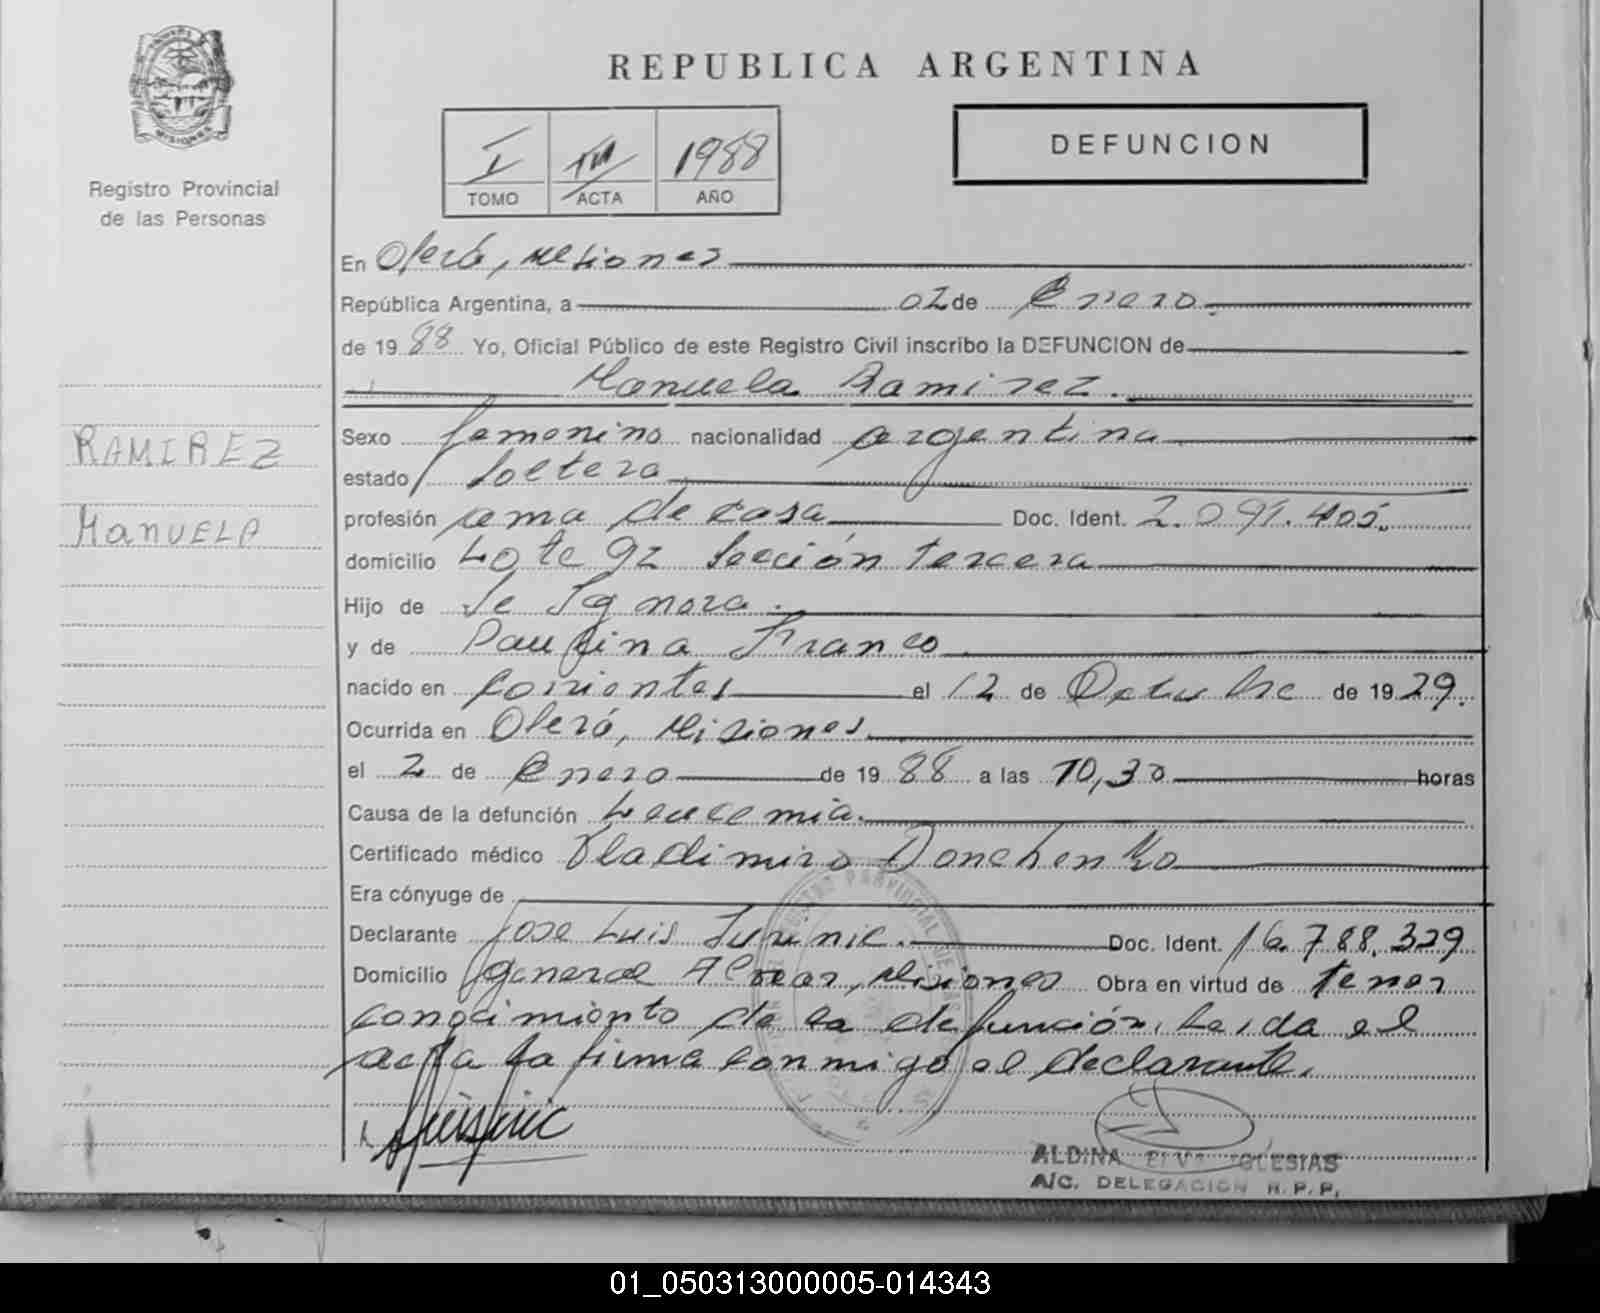 MISIONES
Registro Provincial
de las Personas
REPUBLICA ARGENTINA
I 1988
TOMO ACTA AÑO
DEFUNCION
En Oberá, Misiones
República Argentina, a 02 de Enero.
de 1988 Yo, Oficial Público de este Registro Civil inscribo la DEFUNCION de
Manuela Ramirez.
RAMIREZ
MANUELA
Sexo femenino nacionalidad argentina
estado Soltera
profesión ama de casa Doc. Ident. 2.091.405.
domicilio Lote 92 Sección tercera
Hijo de Se Ignora.
y de Paulina Franco
nacido en Corrientes el 12 de Octubre de 1929.
Ocurrida en Oberá, Misiones
el 2 de Enero de 1988 a las 10,30 horas
Causa de la defunción Leucemia.
Certificado médico Vladimiro Donchenko
Era cónyuge de
Declarante Jose Luis Doc. Ident. 16.788.329
Domicilio General Alvear, Misiones Obra en virtud de tener
conocimiento de la defunción. Leida el
acta la firma conmigo el declarante.
ALDINA ELVA IGLESIAS
A/C. DELEGACION R.P.P.
01_050313000005-014343